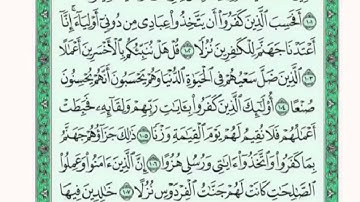 أَفَحَسِبَ ٱلَّذِينَ كَفَرُوٓا۟ أَن يَتَّخِذُوا۟ عِبَادِى مِن دُونِىٓ أَوْلِيَآءَ ۚ إِنَّآ
أَعْتَدْنَا جَهَنَّمَ لِلْكَٰفِرِينَ نُزُلًا ١٠٢ قُلْ هَلْ نُنَبِّئُكُم بِٱلْأَخْسَرِينَ أَعْمَٰلًا
١٠٣ ٱلَّذِينَ ضَلَّ سَعْيُهُمْ فِى ٱلْحَيَوٰةِ ٱلدُّنْيَا وَهُمْ يَحْسَبُونَ أَنَّهُمْ يُحْسِنُونَ
صُنْعًا ١٠٤ أُو۟لَٰٓئِكَ ٱلَّذِينَ كَفَرُوا۟ بِـَٔايَٰتِ رَبِّهِمْ وَلِقَآئِهِۦ فَحَبِطَتْ
أَعْمَٰلُهُمْ فَلَا نُقِيمُ لَهُمْ يَوْمَ ٱلْقِيَٰمَةِ وَزْنًا ١٠٥ ذَٰلِكَ جَزَآؤُهُمْ جَهَنَّمُ
بِمَا كَفَرُوا۟ وَٱتَّخَذُوٓا۟ ءَايَٰتِى وَرُسُلِى هُزُوًا ١٠٦ إِنَّ ٱلَّذِينَ ءَامَنُوا۟ وَعَمِلُوا۟
ٱلصَّٰلِحَٰتِ كَانَتْ لَهُمْ جَنَّٰتُ ٱلْفِرْدَوْسِ نُزُلًا ١٠٧ خَٰلِدِينَ فِيهَا